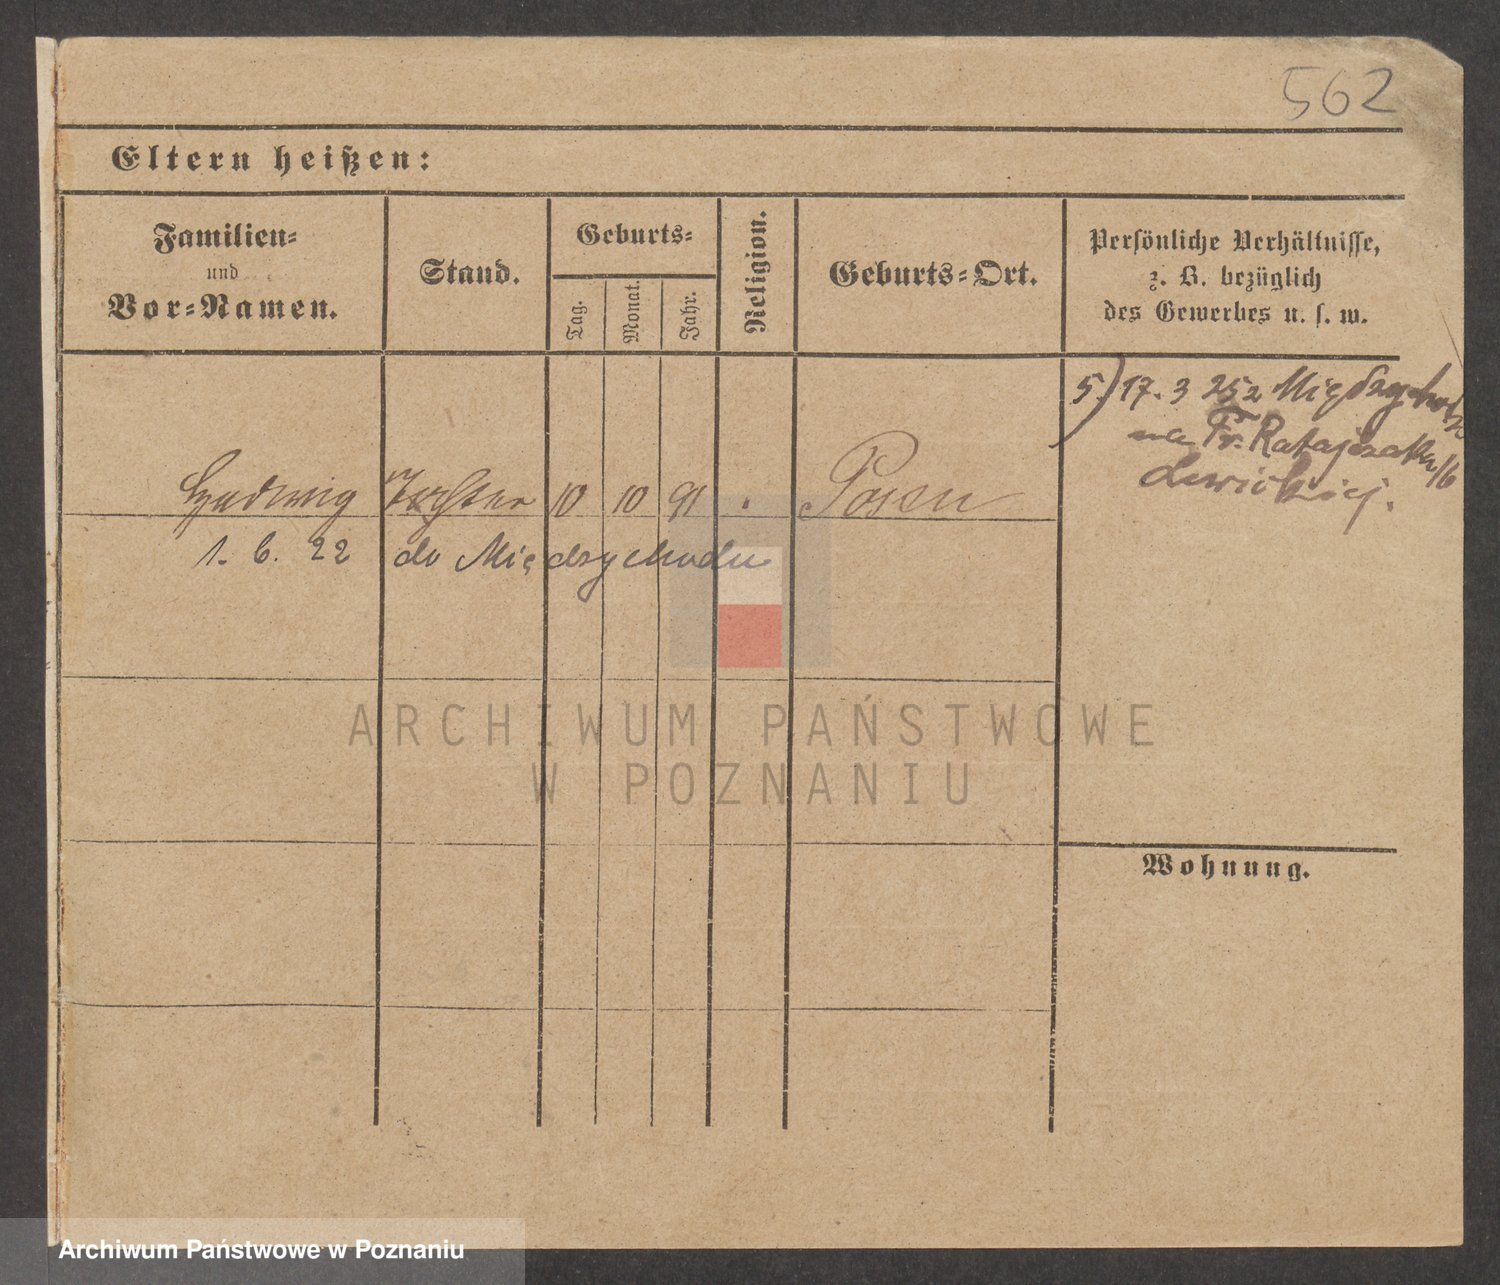 562
Eltern heißen:
Familien-
und
Vor-Namen.
Stand.
Geburts-
Tag.
Monat.
Jahr.
Religion.
Geburts-Ort.
Persönliche Verhältnisse,
z. B. bezüglich
des Gewerbes u. s. w.
5.) 17. 3 25 z Międzychodu
na Fr. Ratajczaka
Lewickiej.
Hedwig Tochter 10 10 91 . Posen
1. 6. 22 do Międzychodu
ARCHIWUM PAŃSTWOWE
W POZNANIU
Wohnung.
Archiwum Państwowe w Poznaniu